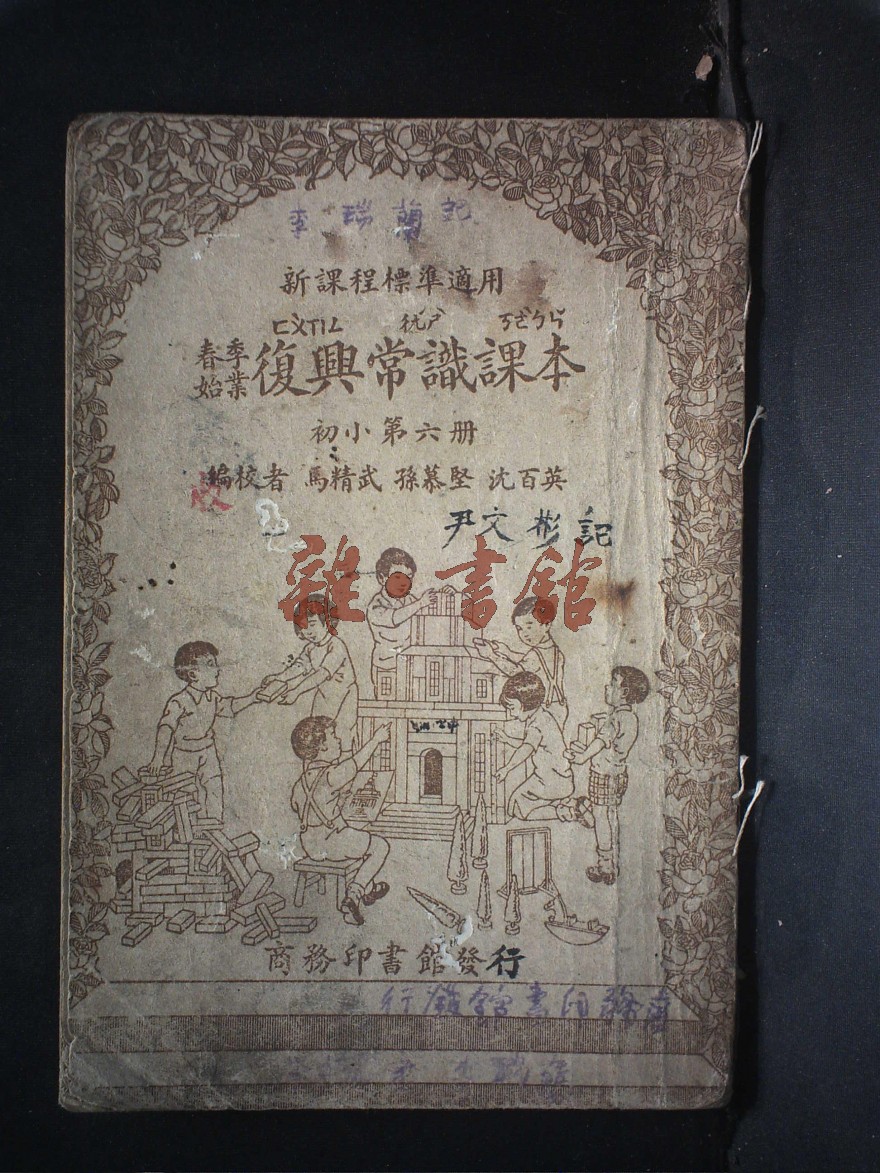 李瑞蘭記
新課程標準適用
春季始業 復興常識課本
初小第六册
編校者 馬精武 孫慕堅 沈百英
尹文彬記
雜·書館
商務印書館發行
商務印書館發行